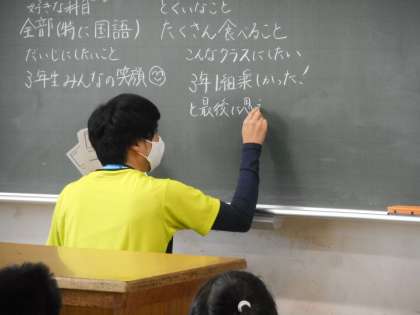 好きな科目
全部(特に国語)
だいじにしたいこと
3年生みんなの笑顔
とくいなこと
たくさん食べること
こんなクラスにしたい
3年1組楽しかった!
と最後に思